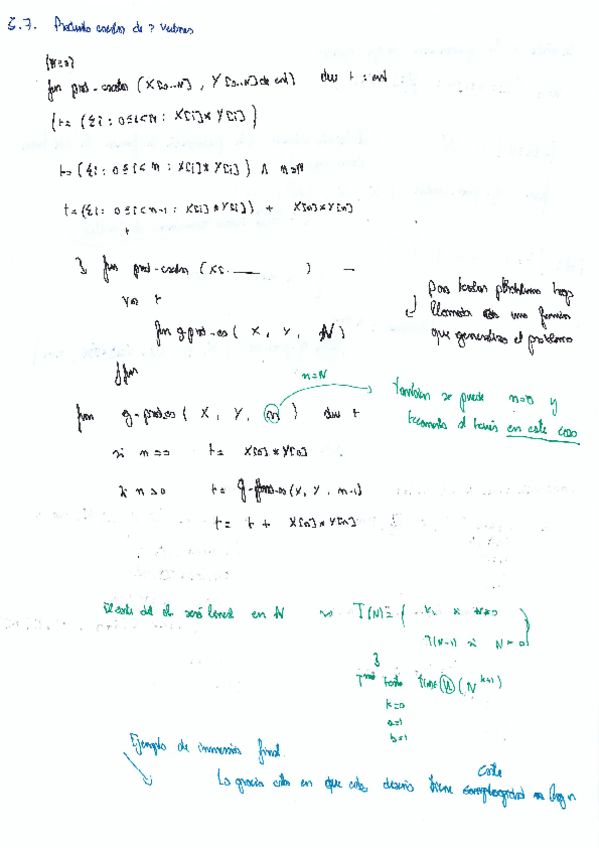 5.7. Producto escalar de 2 vectores
{N≥0}
fun prod-escalar (X[0..N], Y[0..N] de ent) dev t : ent
{t = (Σi : 0≤i<N : X[i]*Y[i])}
t = (Σi : 0≤i<n : X[i]*Y[i]) ∧ n=N
t = (Σi : 0≤i<n-1 : X[i]*Y[i]) + X[n]*Y[n]
fun prod-escalar (X[
var t
fun gprod-es ( X, Y, N)
ffun
Para resolver problema hago
llamada a una función
que generaliza el problema
n=N
fun g-prod.es ( X, Y, n ) dev t
También se puede n=0 y
recorrerlo al revés en este caso
si n=0 t = X[0]*Y[0]
si n>0 t = g-prod-es(X, Y, n-1)
t = t + X[n]*Y[n]
El coste del alg. será lineal en N T(N) = { k, si N=0
T(N-1) si N>0 }
(N^k+1)
k=0
a=1
b=1
Ejemplo de inmersión final.
La gracia esta en que este diseño tiene coste log n